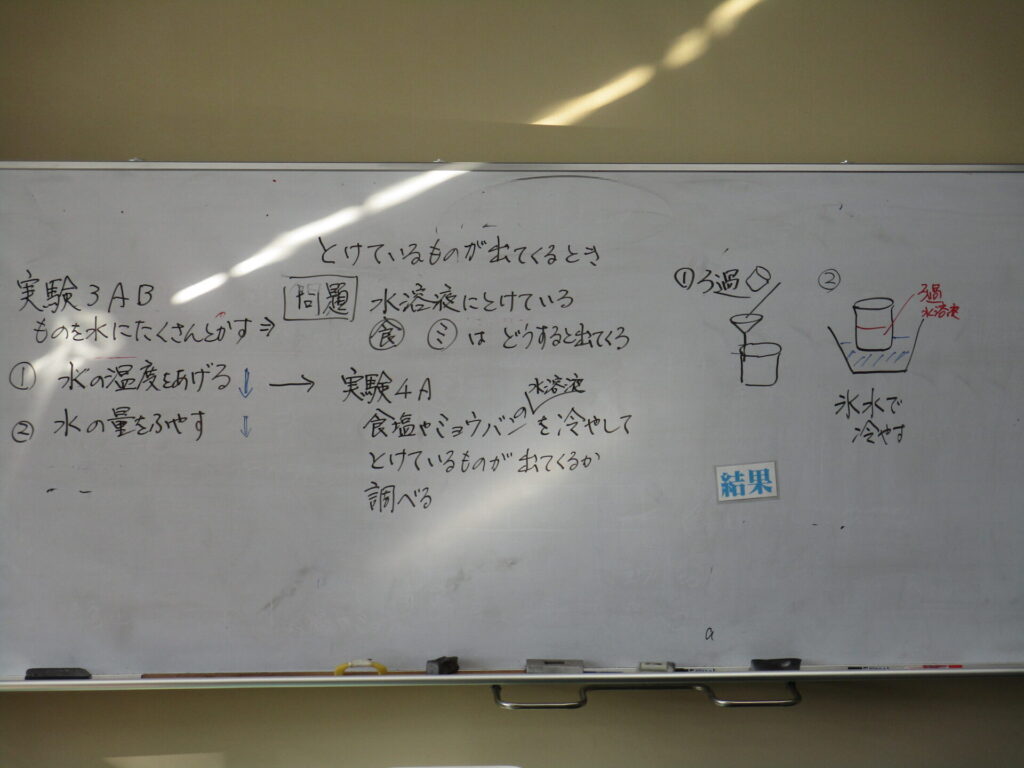 とけているものが出てくるとき
実験3AB
ものを水にたくさんとかす⇒
① 水の温度をあげる ↓ →
② 水の量をふやす ↓
問題 水溶液にとけている
食 ミ は どうすると出てくる
実験4A
水溶液
食塩やミョウバンの を冷やして
とけているものが出てくるか
調べる
① ろ過
②
ろ過
水溶液
氷水で
冷やす
結果
a